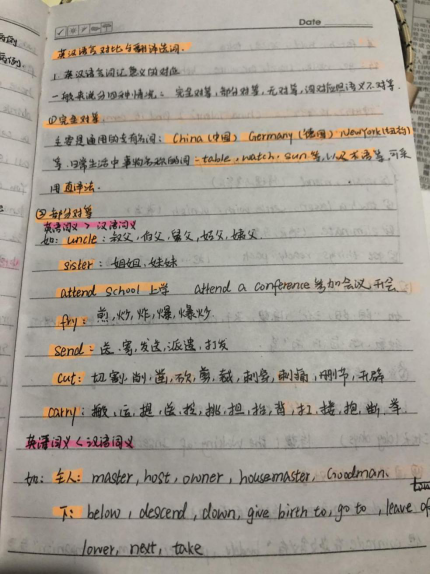 Date
英汉语言对比与翻译选词.
1. 英汉语言词汇意义的对应
一般来说分四种情况: 完全对等,部分对等,无对等,词对应但语义不对等.
①完全对等.
主要是通用的专有名词: China(中国) Germany(德国) NewYork(纽约)
等,日常生活中事物名称的词: table, watch, sun等,以及术语等,可采
用直译法.
②部分对等
英语词义 > 汉语词义
如: uncle: 叔父,伯父,舅父,姑父,姨父.
sister: 姐姐,妹妹
attend school 上学 attend a conference 参加会议,开会
fry: 煎,炒,炸,爆,爆炒.
send: 送,寄,发送,派遣,打发
cut: 切,割,削,剪,裁,刺穿,刺痛,删节,开辟
carry: 搬,运,提,送,挑,担,抬,背,扛,搂,抱,举.
英语词义 < 汉语词义
如: 主人: master, host, owner, housemaster, Goodman.
下: below, descend, down, give birth to, go to, leave of
lower, next, take